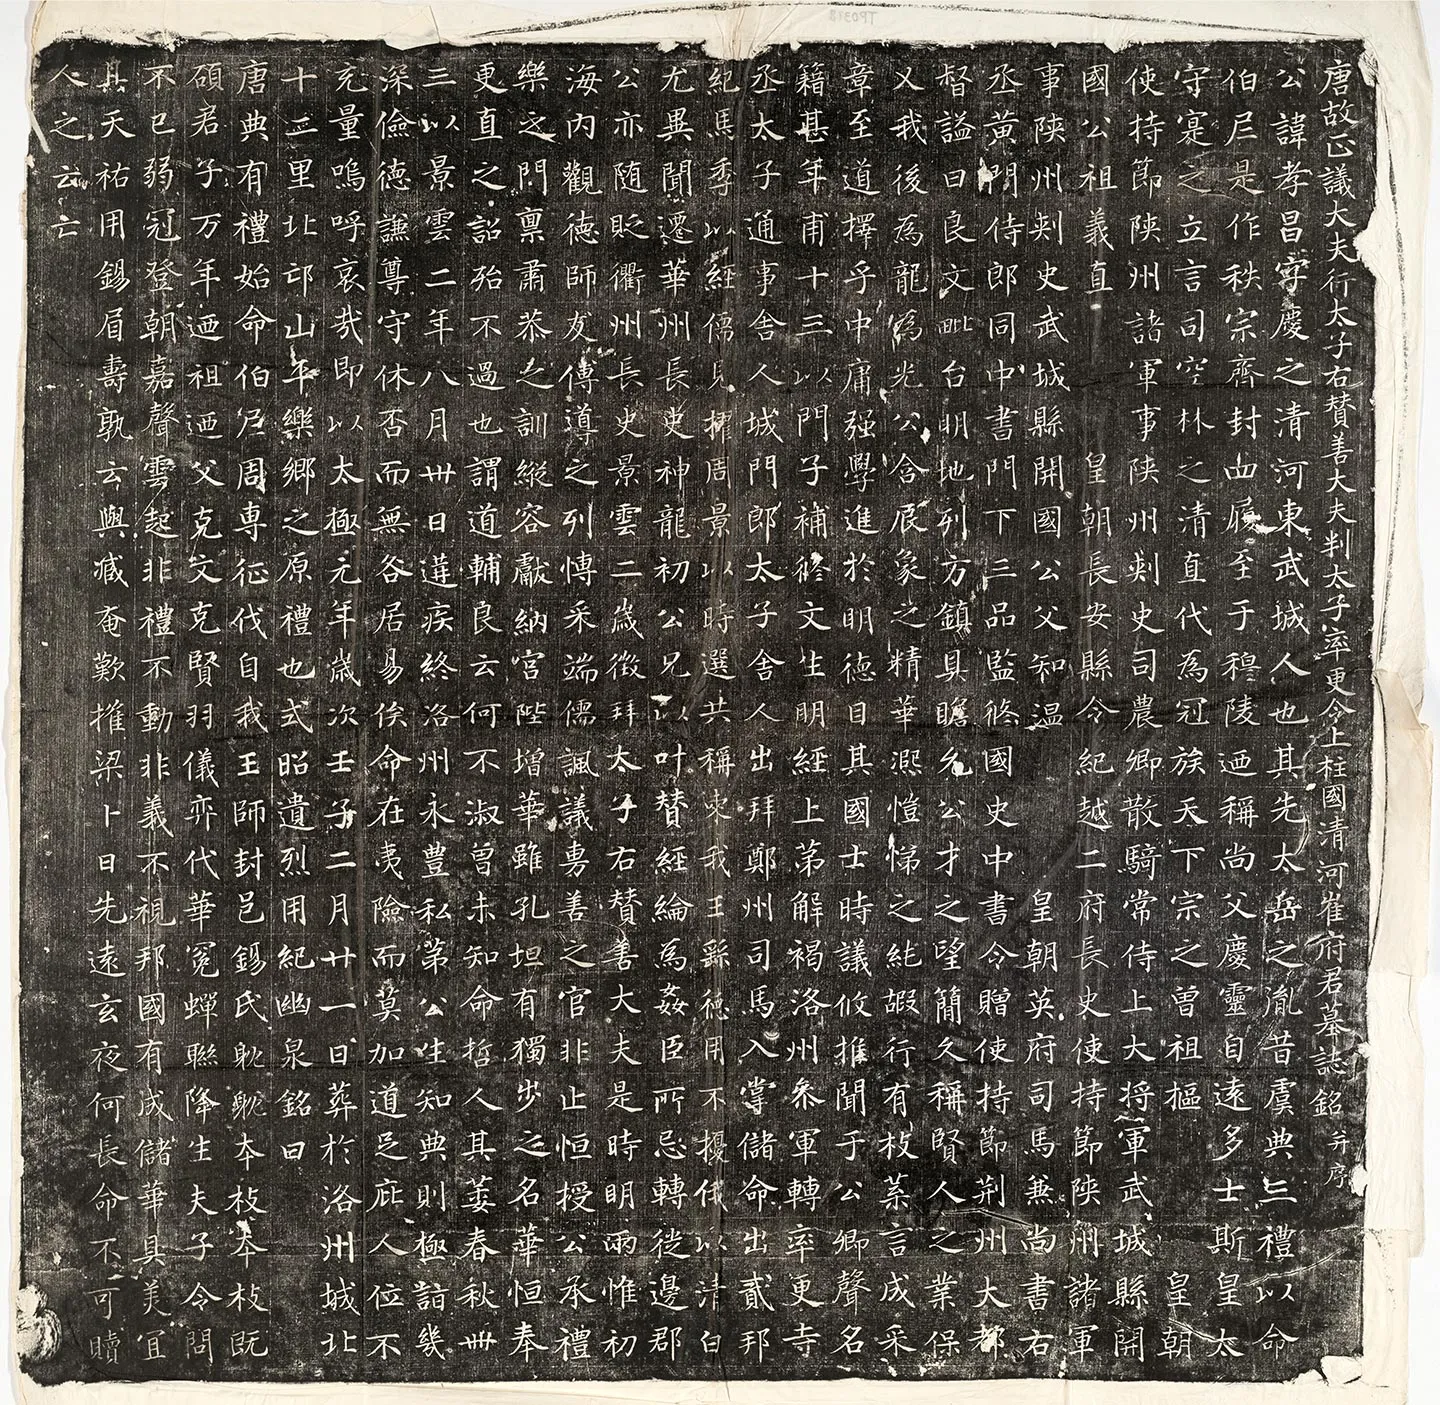 唐故正議大夫行太子右贊善大夫判太子率更令上柱國清河崔府君墓誌銘并序
公諱孝昌字慶之清河東武城人也其先太岳之胤昔虞典三禮以命
伯尼是作秩宗齊封四履至于穆陵迺稱尚父慶靈自遠多士斯皇太
守寔之立言司空林之清直代為冠族天下宗之曾祖樞 皇朝
使持節陝州諸軍事陝州刺史司農卿散騎常侍上大將軍武城縣開
國公祖義直 皇朝長安縣令紀越二府長史使持節陝州諸軍
事陝州刺史武城縣開國公父知溫 皇朝英府司馬兼尚書右
丞黃門侍郎同中書門下三品監修國史中書令贈使持節荊州大都
督謚曰良文毗台明地列方鎮具瞻允公才之望簡久稱賢人之業保
乂我後為龍為光公含辰象之精華濕愷悌之純嘏行有枝葉言成采
章至道擇乎中庸强學進於明德目其國士時議攸推聞于公卿聲名
籍甚年甫十三以門子補修文生明經上第解褐洛州參軍轉率更寺
丞太子通事舍人城門郎太子舍人出拜鄭州司馬入掌儲命出貳邦
紀馬季以經儒見擢周景以時選共稱史我王繇德用不擾俄以清白
尤異聞遷華州長史神龍初公兄以叶贊經綸為姦臣所忌轉徙邊郡
公亦随貶衢州長史景雲二歲徵拜太子右贊善大夫是時明兩惟初
海內觀德師友傅導之列博采端儒諷議勇善之官非止恒授公承禮
樂之門禀肅恭之訓縱容獻納宮陛增華雖孔坦有獨步之名華恒奉
更直之詔殆不過也謂道輔良云何不淑曾未知命哲人其萎春秋卌
三以景雲二年八月卅日遘疾終洛州永豊私第公生知典則極詣幾
深儉德謙尊守休否而無咎居易俟命在夷險而莫加道足庇人位不
充量嗚呼哀哉即以太極元年歲次壬子二月廿一日葬於洛州城北
十二里北邙山平樂鄉之原禮也式昭遺烈用紀幽泉銘曰
唐典有禮始命伯尼周專征伐自我王師封邑錫氏眈眈本枝本枝既
碩君子万年迺祖迺父克文克賢羽儀弈代華冕蟬聯降生夫子令問
不已弱冠登朝嘉聲雲起非禮不動非義不視邦國有成儲華具美宜
其天祐用錫眉壽孰云與臧奄歎摧梁卜日先遠玄夜何長命不可贖
人之云亡